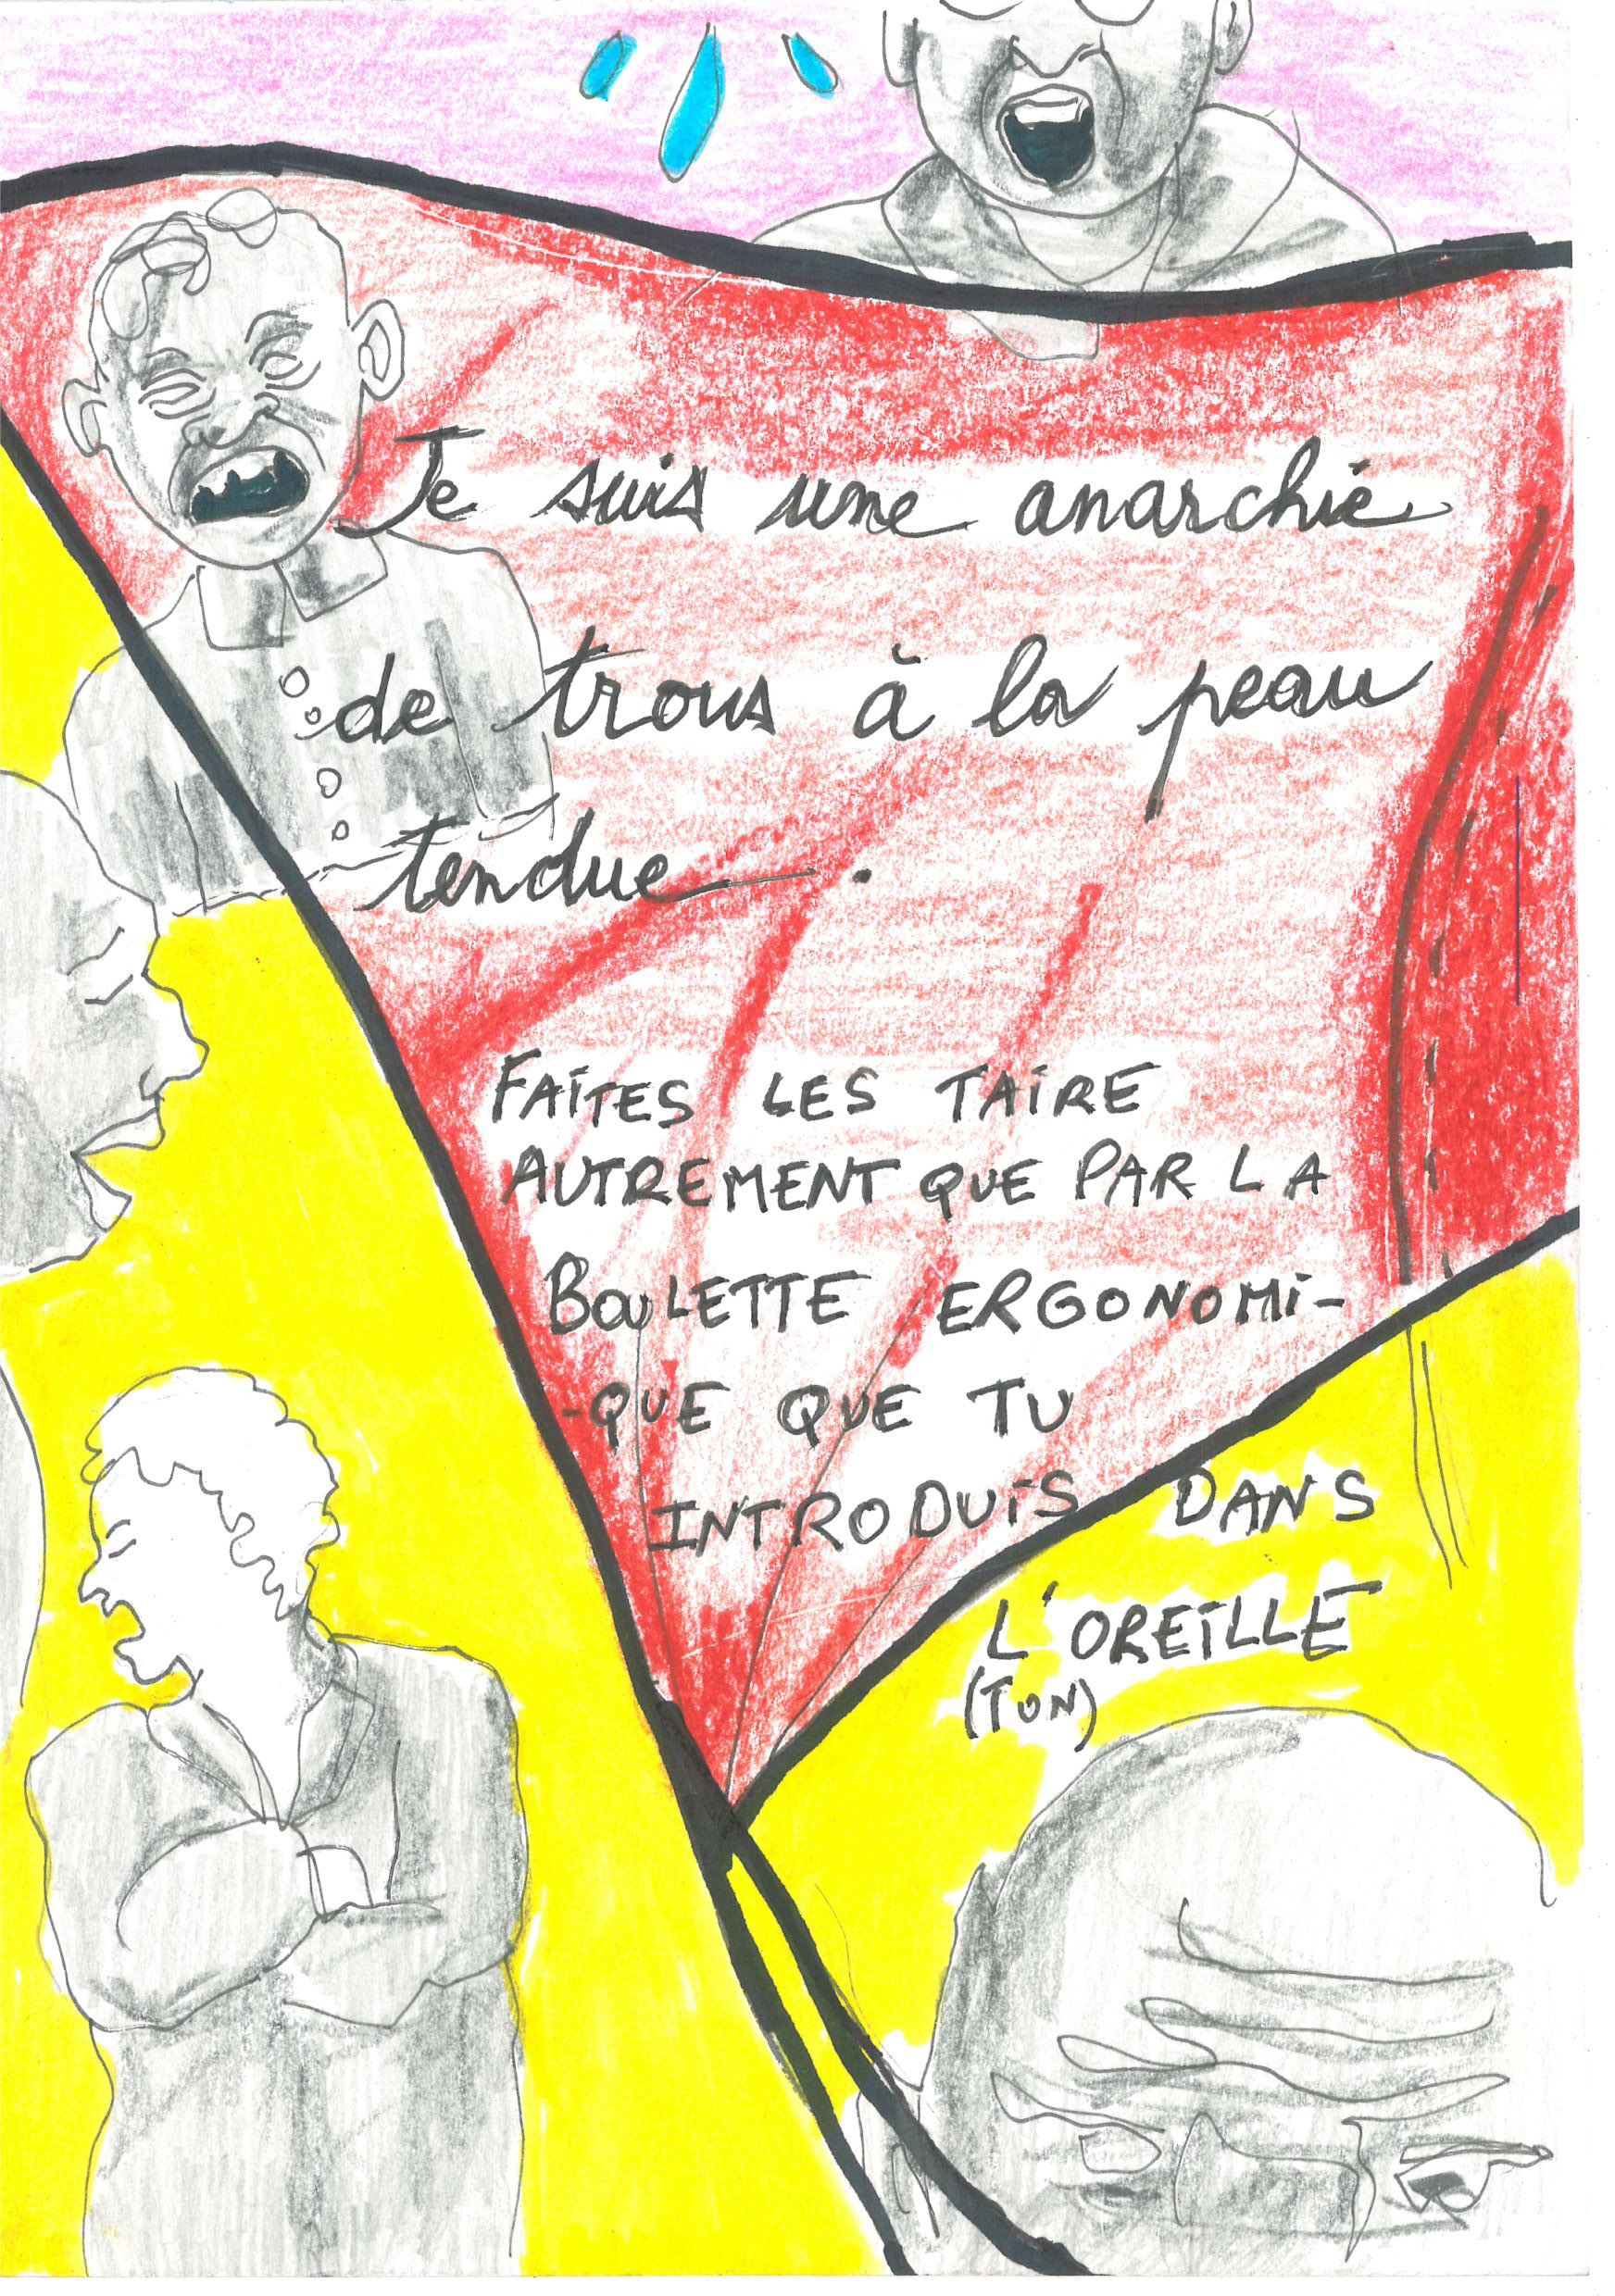 Je suis une anarchie
de trous à la peau
tendue.
FAITES LES TAIRE
AUTREMENT QUE PAR LA
BOULETTE ERGONOMI-
-QUE QUE TU
INTRODUIS DANS
L'OREILLE
(TON)